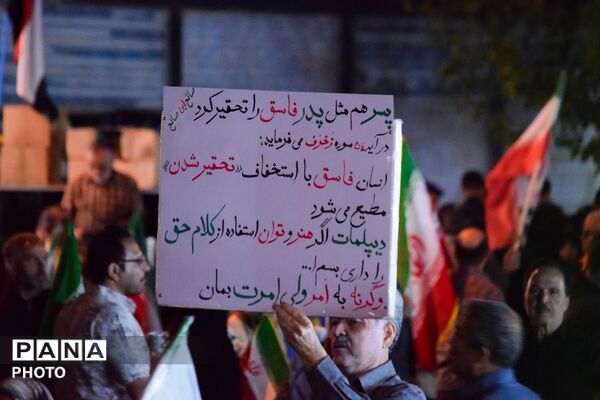 پسر هم مثل پدر فاسق را تحقیر کرد
صالح ابن صالح
در آیه ۵۴ سوره زخرف می فرماید:
انسان فاسق با استخفاف «تحقیر شدن»
مطیع می شود
دیپلمات اگر هنر و توان استفاده از کلام حق
را داری بسم ا...
وگرنه به امر ولی امرت بمان
PANA
PHOTO